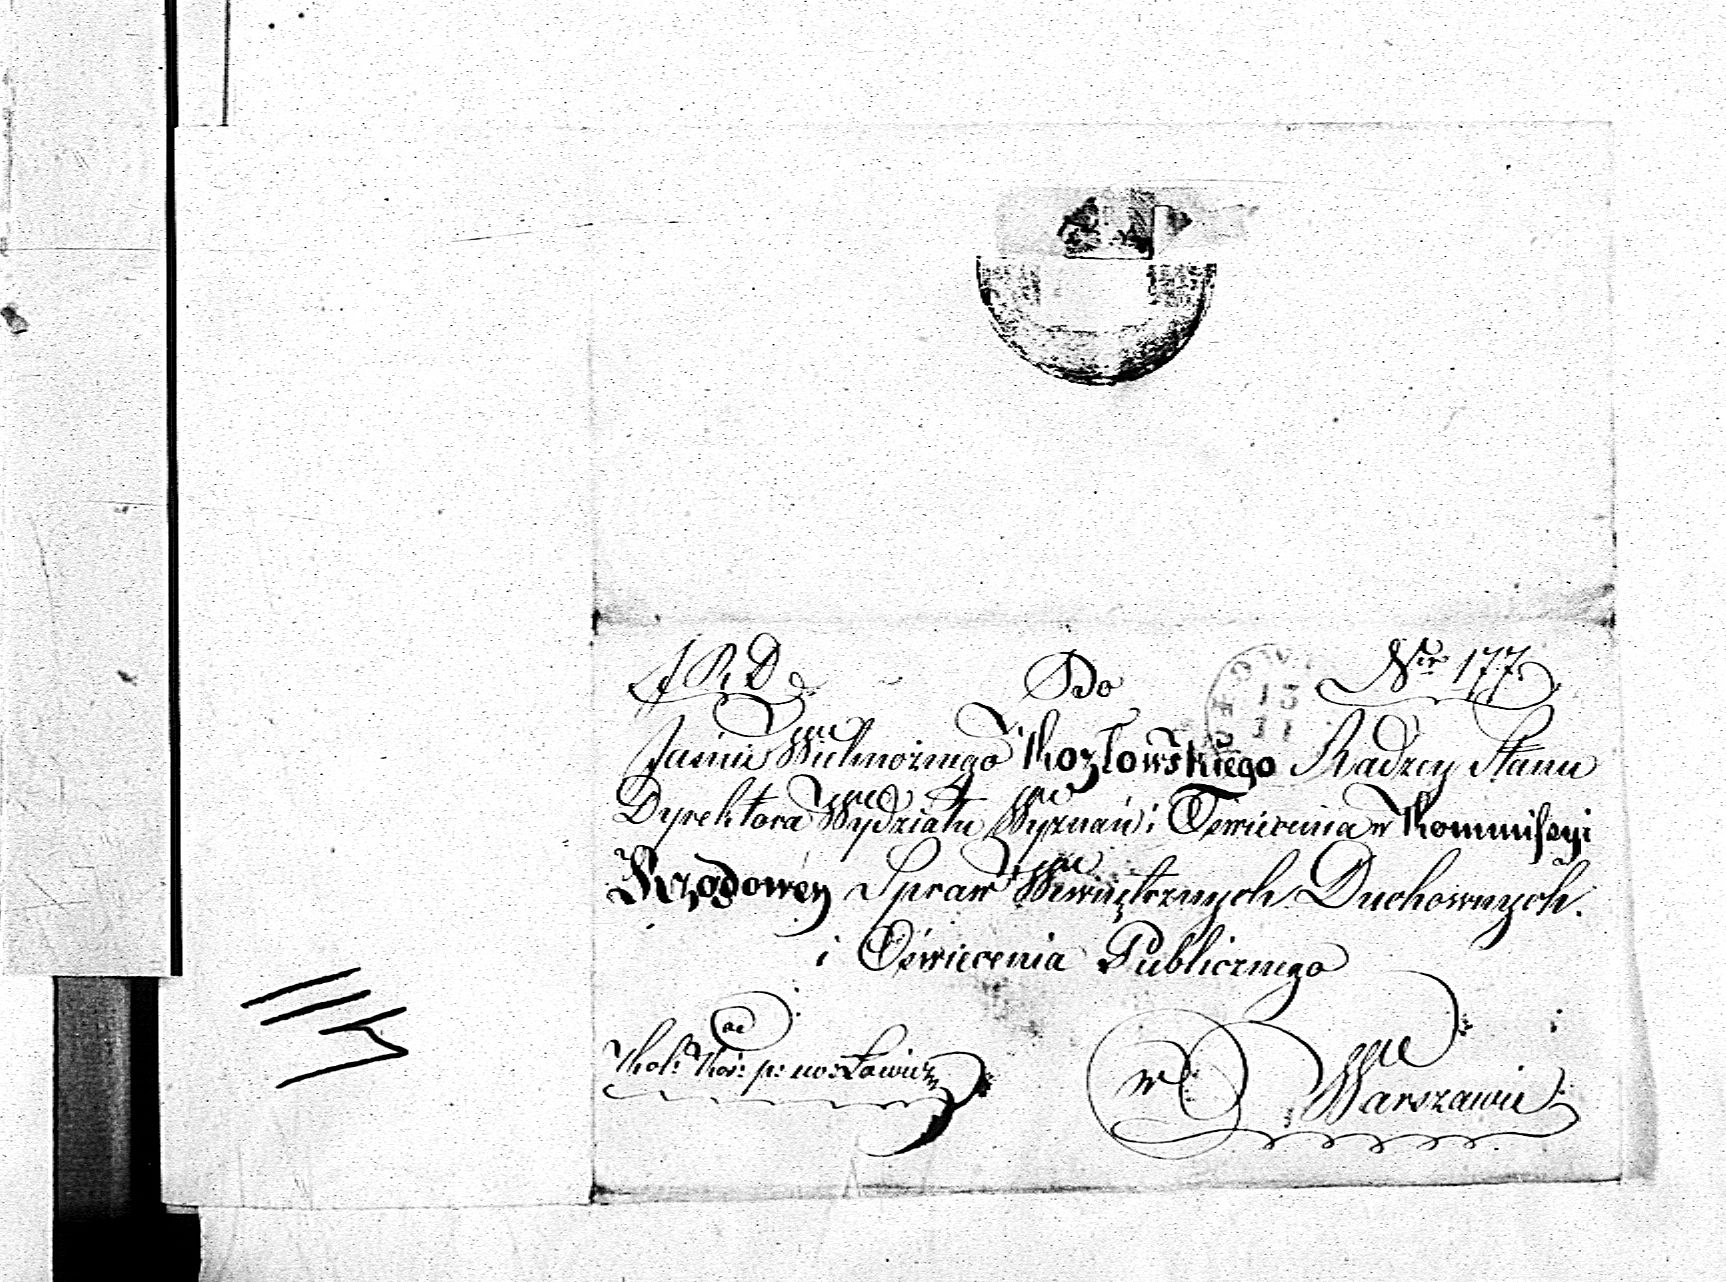 I R D Do Nr 177.
Jaśnie Wielmożnego Kozłowskiego Radzcy Stanu
Dyrektora Wydziału Wyznań i Oświecenia w Kommissyi
Rządowey Spraw Wewnętrznych Duchownych
i Oświecenia Publicznego
w Warszawie